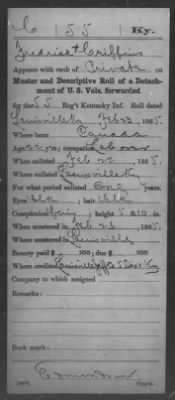 C | 55 | Ky.
Fredrick Griffins
Appears with rank of Private on
Muster and Descriptive Roll of a Detach-
ment of U. S. Vols. forwarded
for the 55 Reg't Kentucky Inf. Roll dated
Louisville Ky Feb 23, 1865.
Where born Canada
Age 22 y'rs; occupation Laborer
When enlisted Feb 22, 1865.
Where enlisted Louisville Ky
For what period enlisted One years.
Eyes Blk; hair Blk
Complexion; height 5 ft. 10 in.
When mustered in Feb 23, 1865.
Where mustered in Louisville
Bounty paid $ 100; due $ 100
Where credited Louisville Ky
Company to which assigned
Remarks:
Book mark:
Edmondson
Copyist.